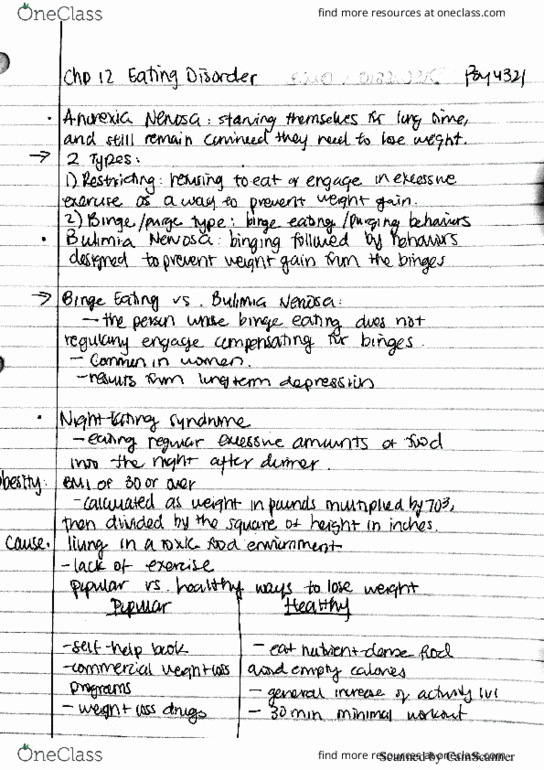 OneClass
find more resources at oneclass.com
find more resources at oneclass.com
Chp 12 Eating Disorder Psy4321
• Anorexia Nervosa: starving themselves for long time,
and still remain convinced they need to lose weight.
→ 2 Types:
1) Restricting: refusing to eat or engage in excessive
exercise as a way to prevent weight gain.
2) Binge/purge type: binge eating/purging behaviors
• Bulimia Nervosa: binging followed by behaviors
designed to prevent weight gain from the binges
→ Binge Eating vs. Bulimia Nervosa:
- the person whose binge eating does not
regularly engage compensating for binges.
- Common in women.
- results from long term depression
• Night-Eating syndrome
- eating regular excessive amounts of food
into the night after dinner.
Obesity: BMI of 30 or over
- calculated as weight in pounds multiplied by 703,
then divided by the square of height in inches.
cause. living in a toxic food environment
- lack of exercise
popular vs. healthy ways to lose weight
Popular Healthy
- self-help book - eat nutrient-dense food
- commercial weight loss avoid empty calories
programs - general increase of activity lvl
- weight loss drugs - 30 min minimal workout
OneClass
find more resources at oneclass.com
Scanned by CamScanner